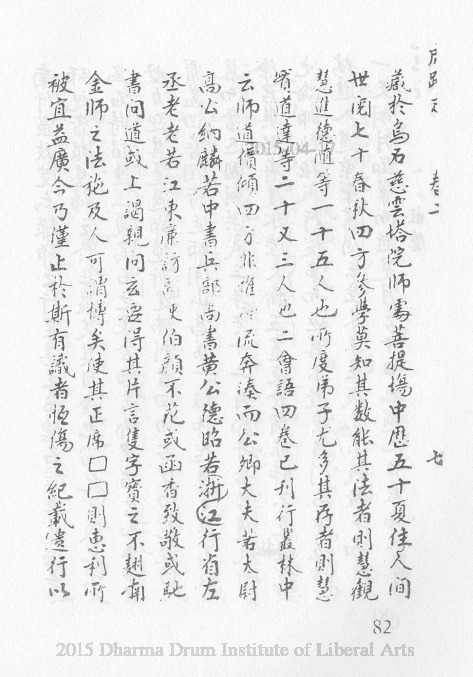 卷二
七
藏於烏石慈雲塔院師處菩提場中歷五十夏住人間
世閱七十春秋四方參學莫知其數能其法者則慧觀
慧進德隨等一十五人也所度弟子尤多其存者則慧
寶道達等二十又三人也二會語四卷已刊行叢林中
云師道價傾四方非唯 流奔湊而公卿大夫若太尉
高公納麟若中書兵部尚書黃公德昭若浙江行省左
丞老老若江東廉訪副使伯顏不花或函香致敬或馳
書問道或上謁親問玄要得其片言隻字寶之不翅南
金師之法施及人可謂博矣使其正席□□則惠利所
被宜益廣今乃僅止於斯有識者恆傷之紀載遺行以
82
2015-04-
2015 Dharma Drum Institute of Liberal Arts